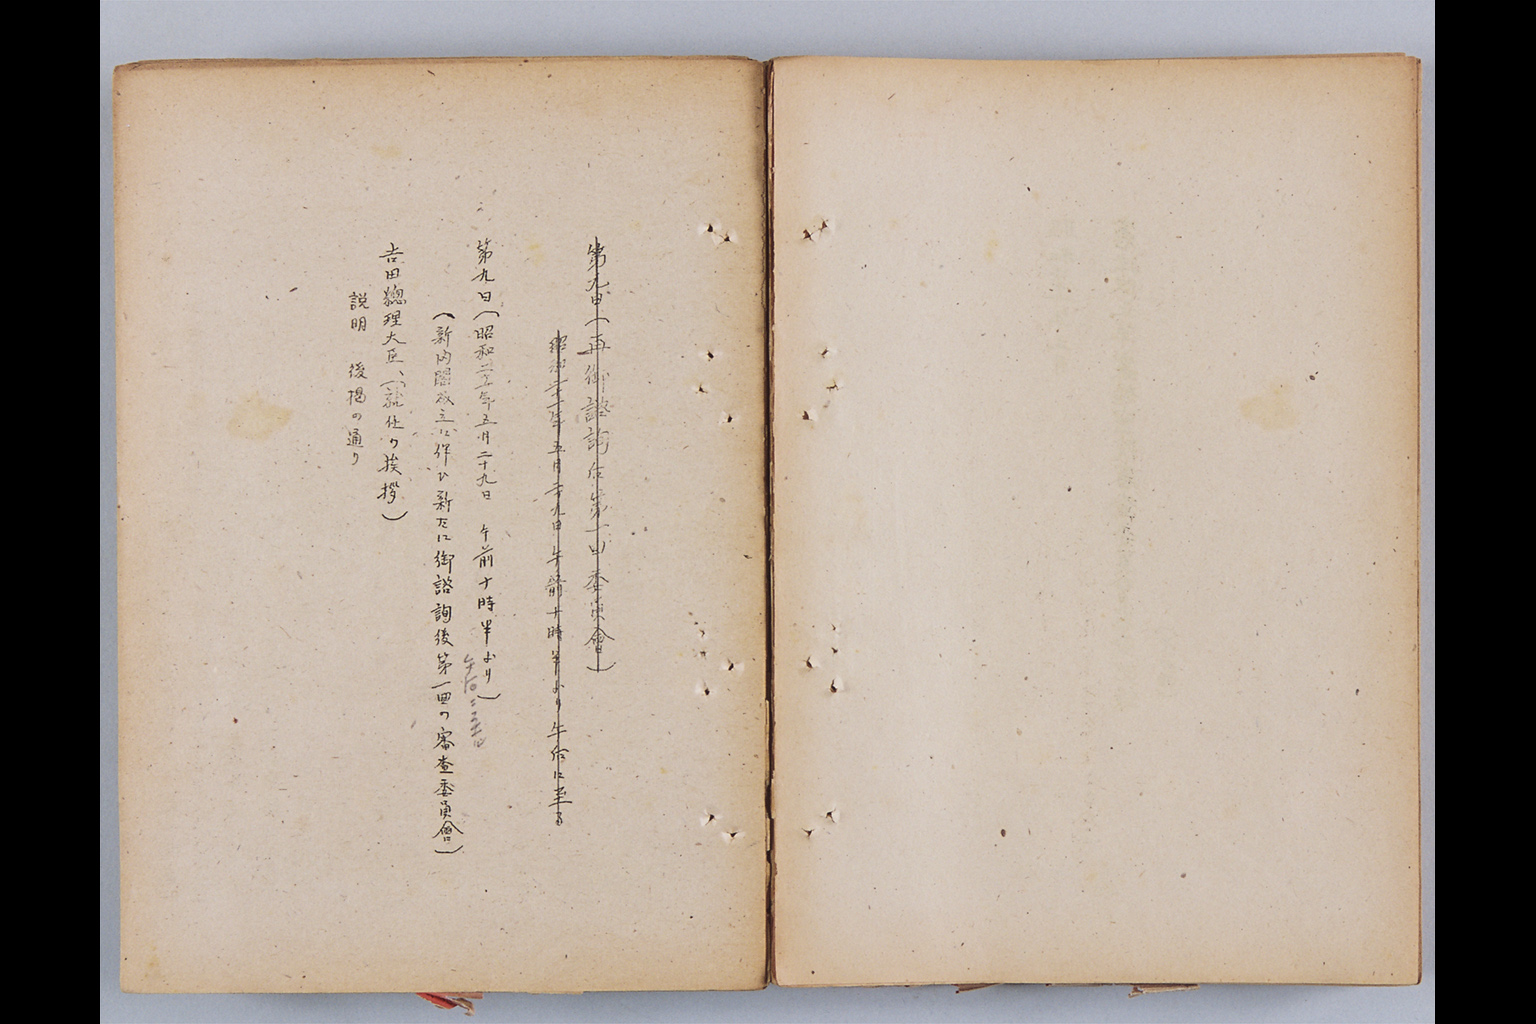 第九日(再御諮詢后第一回委員會)
昭和二十一年五月二十九日午前十時半より午后に至る
第九日(昭和二十一年五月二十九日 午前十時半より)
午后
(新内閣成立に伴ひ新たに御諮詢後第一回の審査委員會)
吉田總理大臣、(就任の挨拶)
説明 後掲の通り